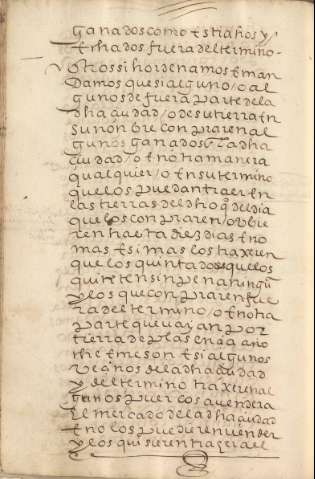 ganados como Estraños y
Echados fuera del termino -
Otrossi hordenamos E man
Damos que si alguno / o al
gunos de fuera parte de la
dha ciudad / o de su tierra En
su nonbre conpraren al
gunos ganados En la dha
ciudad / o En otra manera
qualquier / o En su termino
que los puedan traer En
las tierras del dho q del dia
que los conpraren / o ubie
ren hasta diez dias E no
mas E si mas los traxeren
que los quinta dose que los
quiten sin pena ningu
y los que conpraren fue
ra del termino / o En otra
parte que vaian por
tierra de
the E meson E si algunos
vezinos de la dha ciudad
y del termino traxeren al
gunos puercos a vender a
El mercado de la dha ciudad
E no los pudieren vender
y los quisieren traer a el